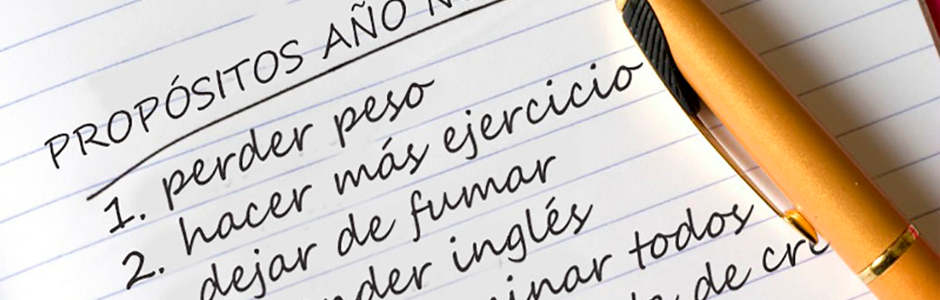 PROPÓSITOS AÑO
1. perder peso
2. hacer más ejercicio
dejar de fumar
inglés
todos
de